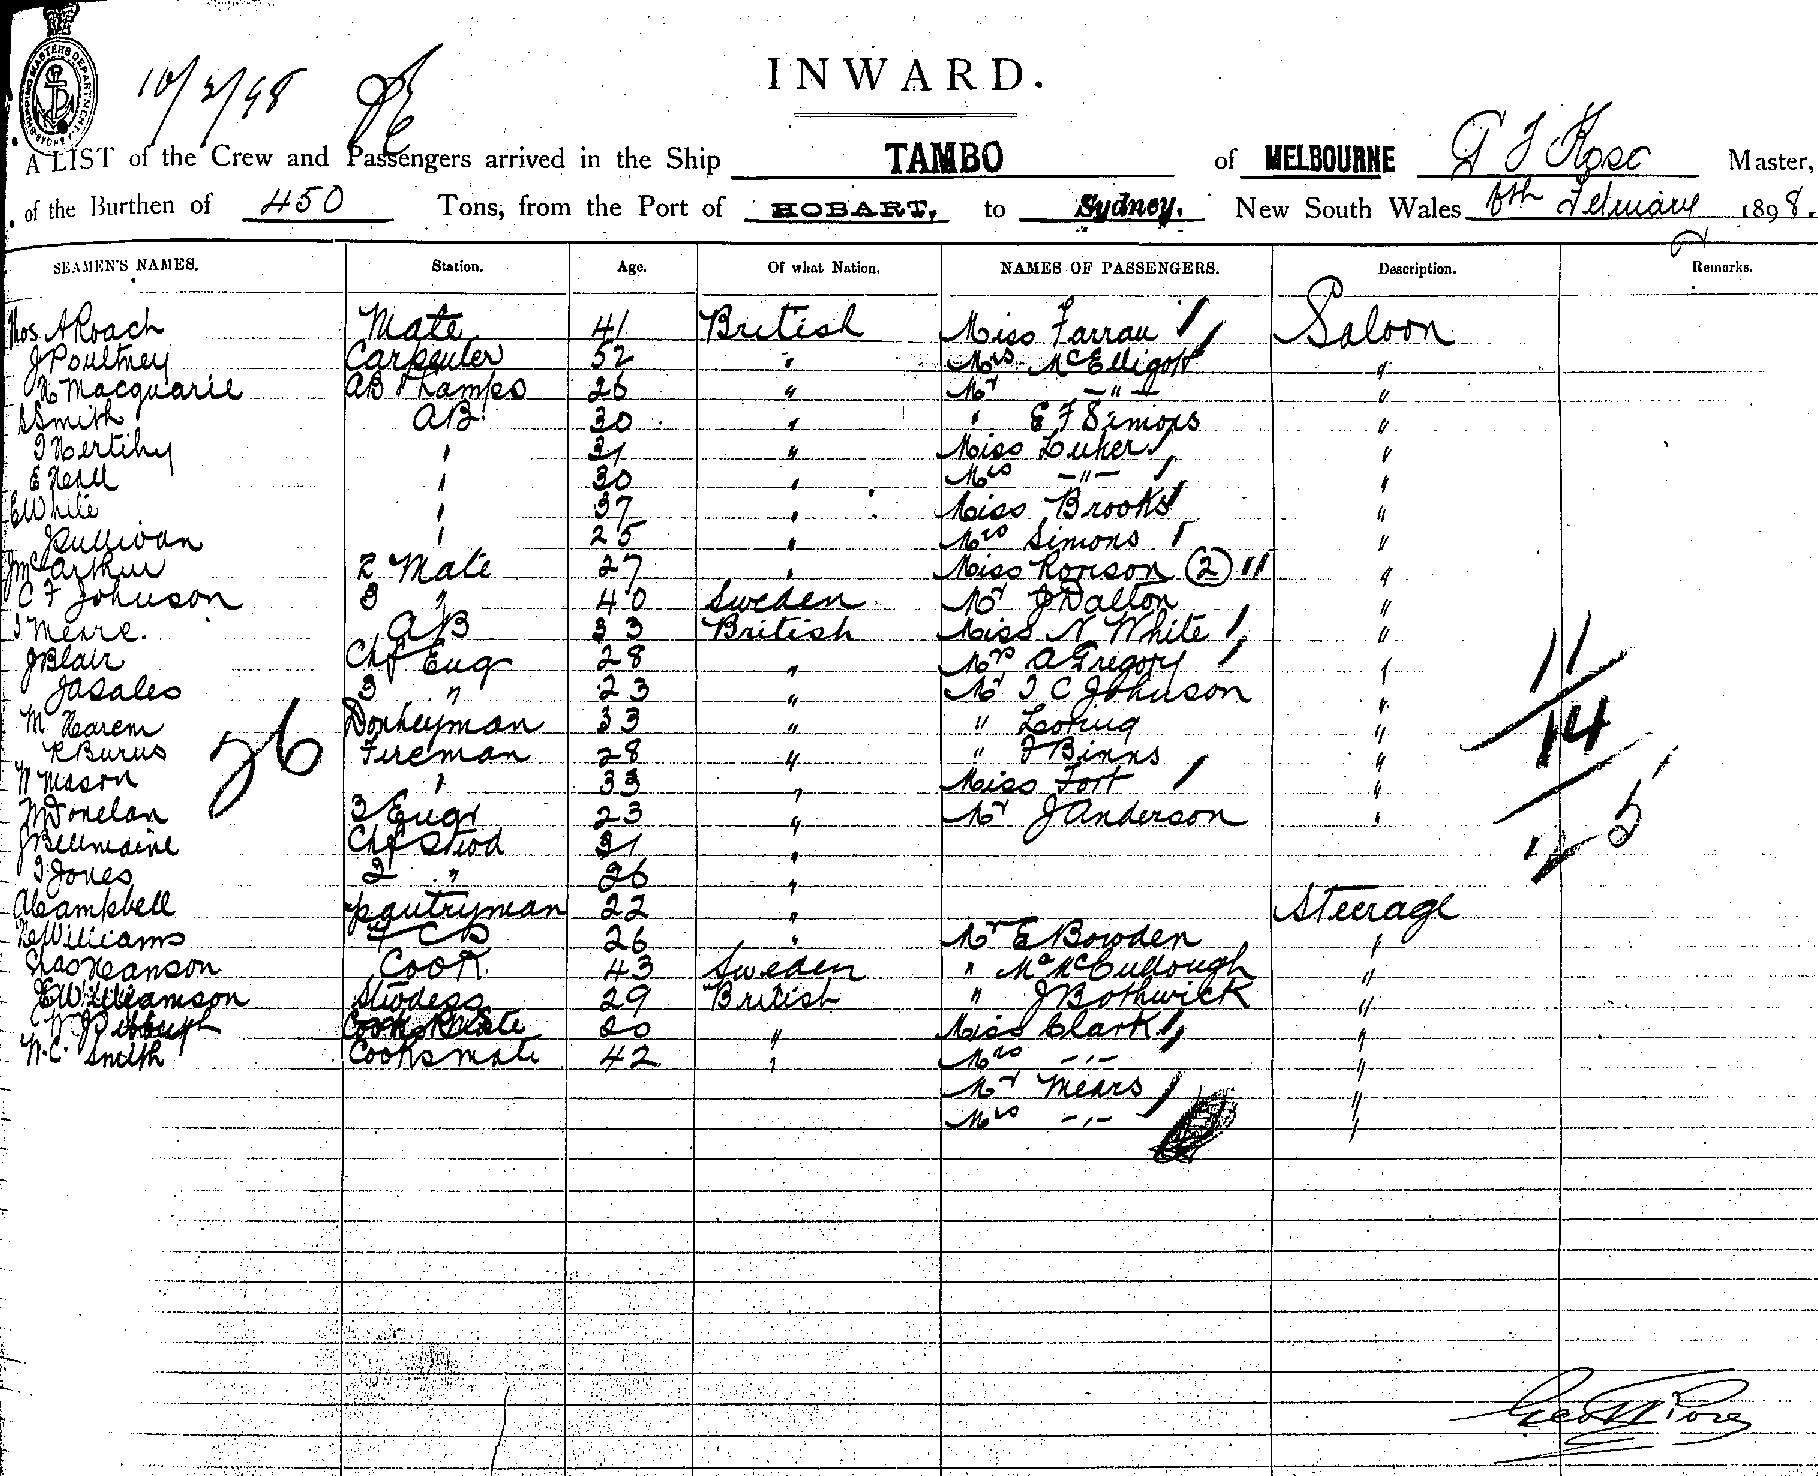 10/2/98
INWARD.
A LIST of the Crew and Passengers arrived in the Ship TAMBO of MELBOURNE Master,
of the Burthen of 450 Tons, from the Port of HOBART, to Sydney. New South Wales February 1898.
SEAMEN'S NAMES. Station. Age. Of what Nation. NAMES OF PASSENGERS. Description. Remarks.
Thos A Roach Mate 41 British Miss Farrau Saloon
J Poultney Carpenter 52 " Mrs McElligott "
Macquarie AB & Lamps 26 " Mr -"- "
S Smith AB 30 " " E F Simons "
" 31 " Miss Luker "
" 30 " Mrs -"- "
E White " 37 " Miss Brooks "
J Sullivan " 25 " Mrs Simons "
J McArthur 2 Mate 27 " Miss (2) "
C F Johnson 3 " 40 Sweden Mr J Dalton "
AB 33 British Miss N White "
J Blair Chf Eng 28 " Mrs A Gregory "
3 " 23 " Mr T C Johnson "
M Donkeyman 33 " " "
26
R Burns Fireman 28 " " J Binns "
Mason " 33 " Miss Fort "
Donelan 3 Engr 23 " Mr J Anderson "
11
14
25
J Chf Stwd 31 "
T Jones 2 " 26 "
A Campbell pantryman 22 " Steerage
Williams 26 " Mr E Bowden "
Chas Hanson Cook 43 Sweden " McCullough "
E Williamson Stwdess 29 British " J Bothwick "
" Miss Clark "
Smith Cooks mate 42 " Mrs -"- "
Mr Mears "
Mrs -"- "